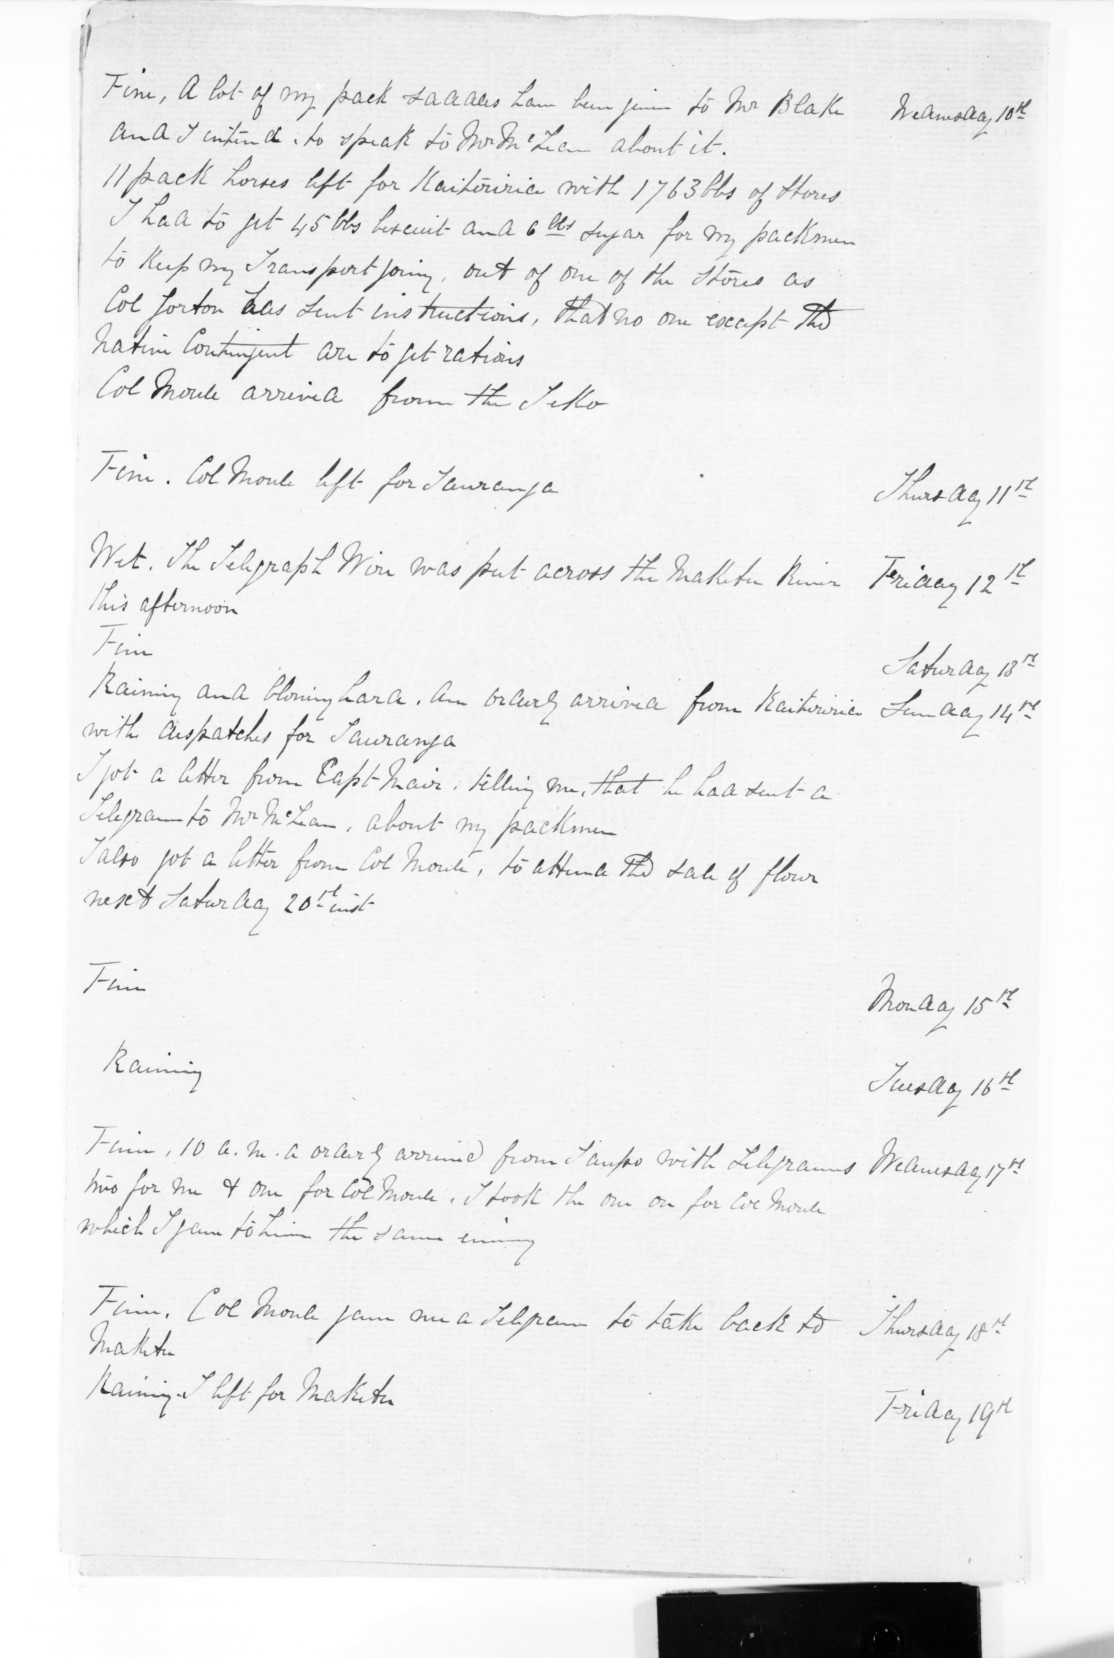 Fine, A lot of my pack saddles have been given to Mr Blake Wednesday 10th
and I intend. to speak to Mr McLean about it.
11 pack horses left for Kaiteriria with 1763 lbs of stores
I had to get 45 lbs biscuit and 6 lbs sugar for my packmen
to keep my Transport going, out of one of the stores as
Col Gorton has sent instructions, that no one except the
Native Contingent are to get rations
Col Moule arrived from the Teko
Fine. Col Moule left for Tauranga Thursday 11th
Wet. The Telegraph Wire was put across the Maketu River Friday 12th
this afternoon
Fine Saturday 13th
Raining and blowing hard. An orderly arrived from Kaiteriria Sunday 14th
with dispatches for Tauranga
I got a letter from Capt Mair, telling me, that he had sent a
Telegram to Mr McLean, about my packmen
I also got a letter from Col Moule, to attend the sale of flour
next Saturday 20th inst
Fine Monday 15th
Raining Tuesday 16th
Fine, 10 a.m. a orderly arrived from Taupo with Telegrams Wednesday 17th
two for me & one for Col Moule. I took the one on for Col Moule
which I gave to him the same evening
Fine. Col Moule gave me a Telegram to take back to Thursday 18th
Maketu
Raining. I left for Maketu Friday 19th